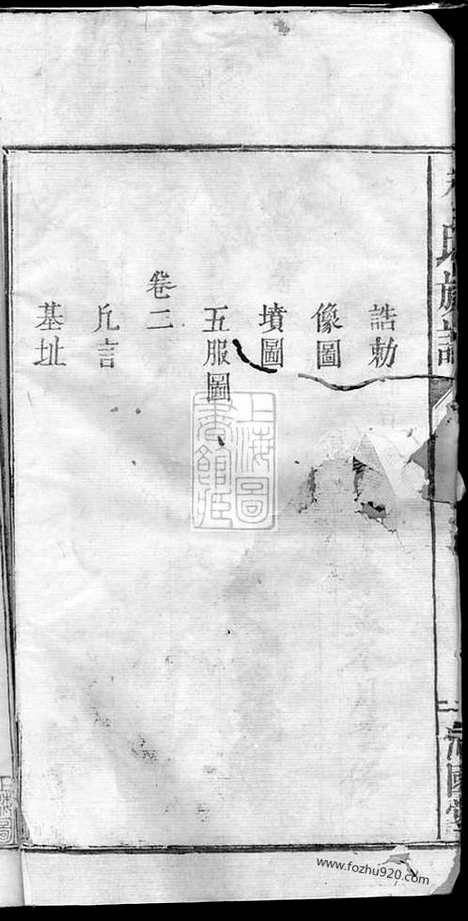 誥勅
像圖
墳圖
五服圖
卷二
凡言
基址
上海圖書館藏
www.fozhu920.com